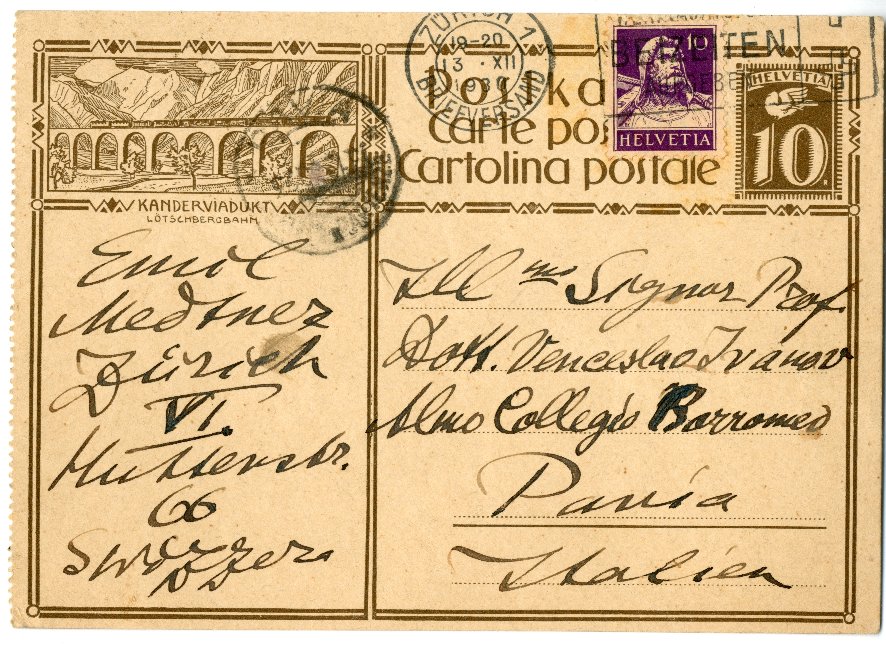 ZÜRICH 1
19-20
13 · XII
1930
BRIEFVERSAND
BEIZEITEN
10
HELVETIA
HELVETIA
10
Carte pos
Cartolina postale
KANDERVIADUKT
LÖTSCHBERGBAHN
Emil
Medtner
Zürich
VI.
Huttenstr.
66
Svizzera
Ill mo Signor Prof.
Dott. Venceslao Ivanov
Almo Collegio Borromeo
Pavia
Italien